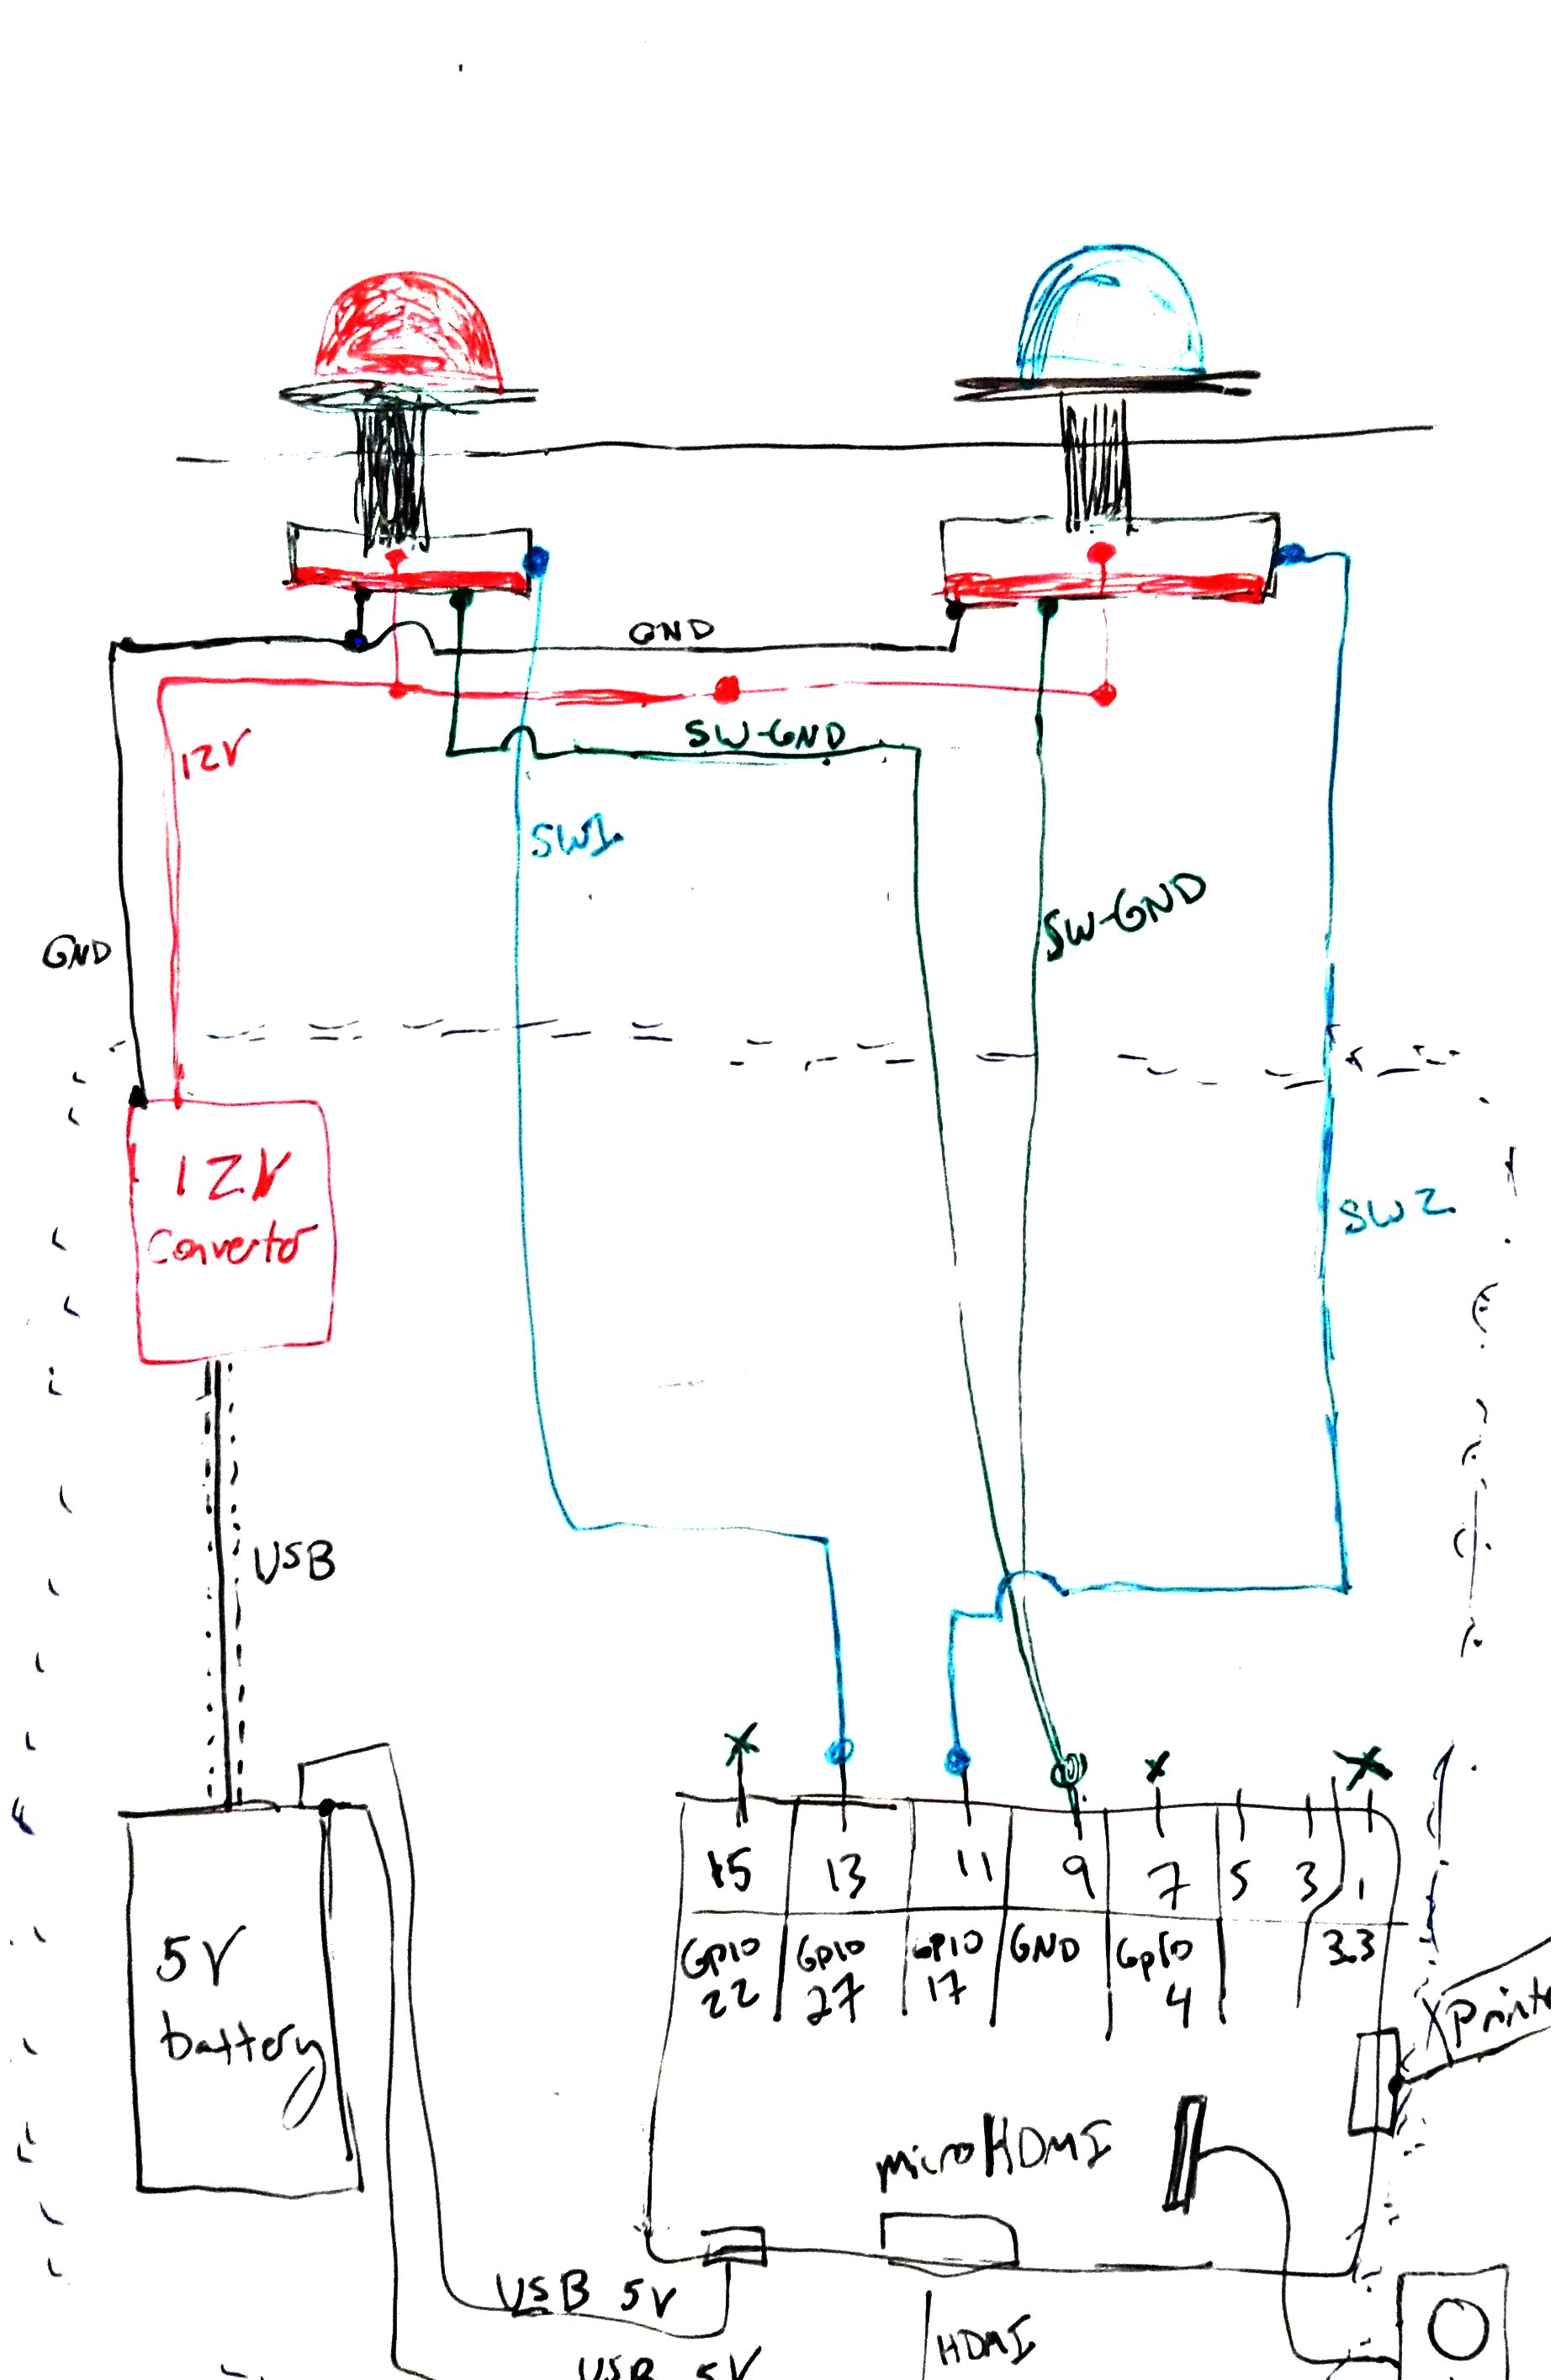 GND
12V
SW-GND
SW1
SW-GND
GND
12V
Convertor
SW2
USB
15 13 11 9 7 5 3 1
GPIO 22
GPIO 27
GPIO 17
GND
GpIO 4
3.3
5V
battery
XPrinte
microHDMI
USB 5V
HDMI
USB 5V